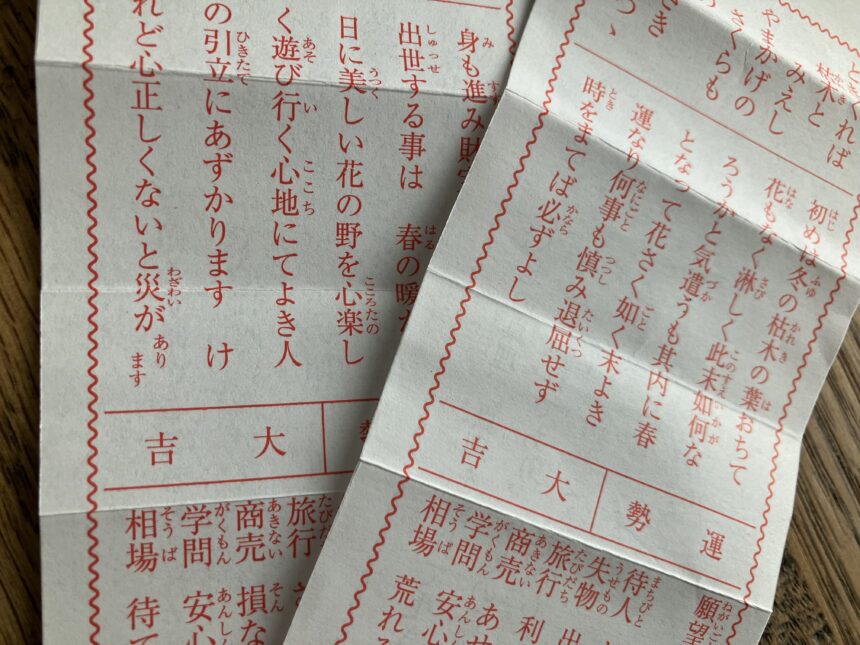 くれば
枯木と
みえし
やまかげの
さくらも
さき
つゝ
初めは冬の枯木の葉おちて
花もなく淋しく此末如何な
ろうかと気遣うも其内に春
となって花さく如く末よき
運なり何事も慎み退屈せず
時をまてば必ずよし
運勢
大吉
願望
待人
失物 出
旅行 利
商売 あせ
学問 安心
相場 荒れる
身も進み財
出世する事は 春の暖
日に美しい花の野を心楽し
く遊び行く心地にてよき人
の引立にあずかります け
れど心正しくないと災があります
大吉
旅行
商売 損な
学問 安心
相場 待て